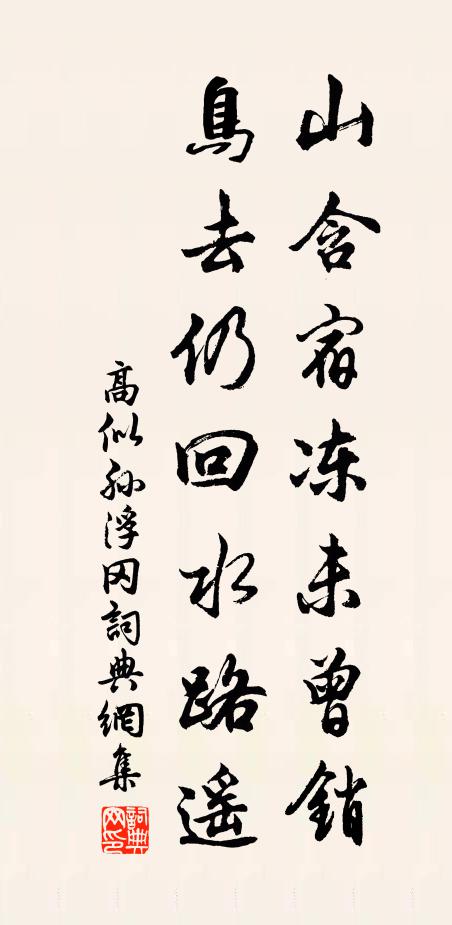 山含宿冻未曾銷
鳥去仍回水路遥
高似孙浮冈詞典網集
詞典
网印